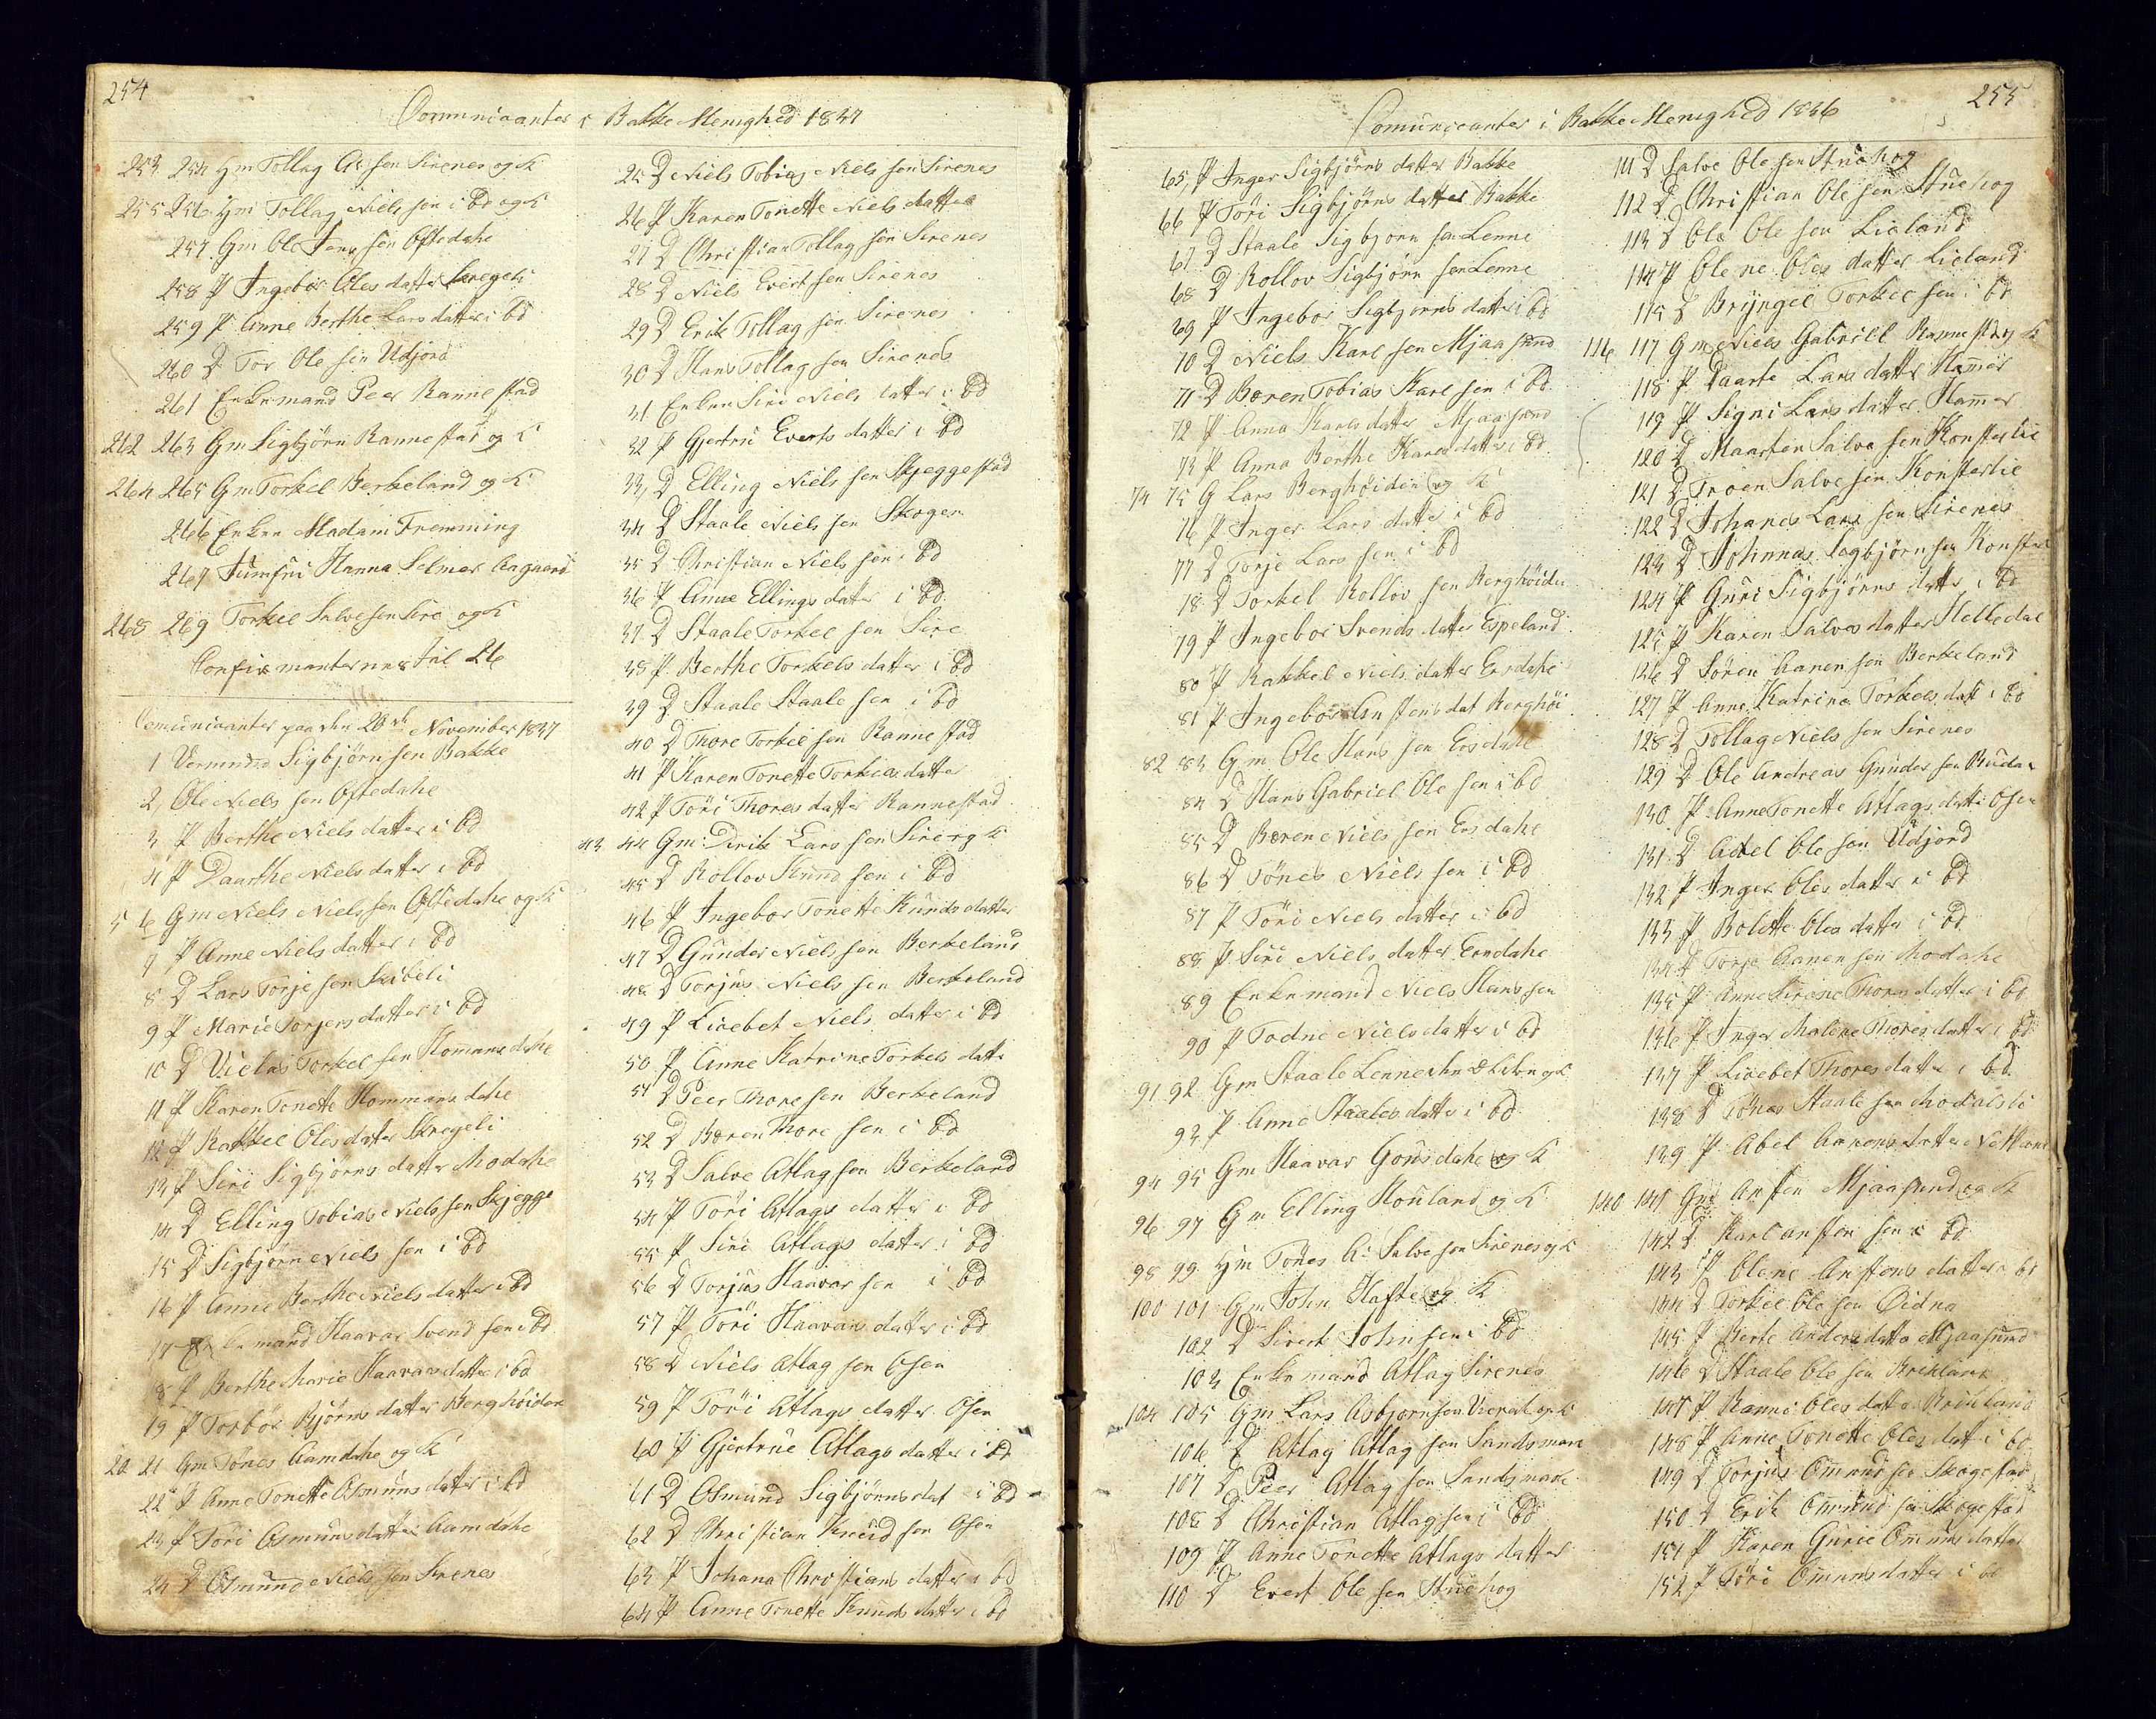 254
Comunicanter i Bakke Menighed 1837
253 254 Hm Tollag As sen Sirenes og K
255 256 Hm Tollag Niels sen i bd og K
257 Gm Ole Jens sen Oftedahl
258 P Ingebor Oles datter Skregeli
259 P Anne Berthe Lars datter i bd
260 D Tor Ole sen Udjord
261 Enkemand Peer Rannestad
262 263 Gm Sigbjørn Rannestad og K
264 265 Gm Torkel Berkeland og K
266 Enken Madam Fremming
267 Jumfru Hanna Selmer Aagaard
268 269 Torkel Salvesen Sire og K
Confirmanternes Tal 26
Comunicanter paa den 20de November 1837
1 Vermund Sigbjørn sen Bakke
2, Ole Niels sen Oftedahl
3 P Berthe Niels datter i bd
4 P Daarthe Niels datter i bd
5 6 Gm Niels Niels sen Oftedahl og K
7, P Anne Niels datter i bd
8 D Lars Torje sen Skibeli
9 P Marie Torjers datter i bd
10 D Torkel sen Hommansdahl
11 P Karen Tonette Hommansdahl
12 P Rakkel Oles datter Skregeli
13 P Siri Sigbjørns datter Modahl
14 D Elling Tobias Niels sen Skjegge
15 D Sigbjørn Niels sen i bd
16 P Anne Berthe Niels datter i bd
17 Enkemand Haavar Svend sen i bd
18 P Berthe Marie Haavars datter i bd
19 P Torbor Bjørns datter Berghøiden
20 21 Gm Tønes Aamdahl og K
22 P Anne Tonette Osmuns datter i bd
23 P Tori Osmuns datter Aamdahl
24 D Osmund Niels sen Sirenes
25 D Niels Tobias Niels sen Sirenes
26 P Karen Tonette Niels datter
27 D Christian Tollag sen Sirenes
28 D Niels Evert sen Sirenes
29 D Erik Tollag sen Sirenes
30 D Hans Tollag sen Sirenes
31 Enken Siri Niels datter i bd
32 P Gjertru Everts datter i bd
33, D Elling Niels sen Skjeggestad
34 D Staale Niels sen Skogen
35 D Christian Niels sen i bd
36 P Anne Ellings datter i bd
37 D Staale Torkel sen Sire
38 P Berthe Torkels datter i bd
39 D Staale Staale sen i bd
40 D Thore Torkel sen Rannestad
41 P Karen Tonette Torkels datter
42 P Tori Thores datter Rannestad
43 44 Gm: Dirik Lars sen Sire og K
45 D Rollov Knud sen i bd
46 P Ingebor Tonette Knuds datter
47 D Gunder Niels sen Berkeland
48 D Torjus Niels sen Berkeland
49 P Lisebet Niels datter i bd
50 P Anne Katrine Torkels datt
51 D Peer Thore sen Berkeland
52 D Børen Thore sen i bd
53 D Salve Atlag sen Berkeland
54 P Tori Atlags datter i bd
55 P Siri Atlags datter i bd
56 D Torjus Haavar sen i bd
57 P Tori Haavars datter i bd
58 D Niels Atlag sen Osen
59 P Tori Atlags datter Osen
60 P Gjertrue Atlags datter i bd
61 D Osmund Sigbjørns dat i bd
62 D Christian Knud sen Osen
63 P Johana Christians datter i bd
64 P Anne Tonette Knuds datter i bd
255
Comunicanter i Bakke Menighed 1836
65, P Inger Sigbjørns datter Bakke
66 P Tori Sigbjørns datter Bakke
67 D Staale Sigbjørn sen Lenne
68 D Rollov Sigbjørn sen Lenne
69 P Ingebor Sigbjørns datter i bd
70 D Niels Karl sen Mjaasund
71 D Børen Tobias Karl sen i bd
72 P Anna Karls datter Mjaasund
73 P Anna Berthe Karls datter i bd
74 75 G Lars Berghøiden og K
76 P Inger Lars datter i bd
77 D Torje Lars sen i bd
78 D Torkel Rollov sen Berghøiden
79 P Ingebor Svends datter Espeland
80 P Rakkel Niels datter Ersdahl
81 P Ingebor datt Berghøi
82 83 Gm Ole Hans sen Ersdahl
84 D Hans Gabriel Ole sen i bd
85 D Børen Niels sen Ersdahl
86 D Tønes Niels sen i bd
87 P Tori Niels datter i bd
88 P Siri Niels datter Ersdahl
89 Enkemand Niels Hans sen
90 P Todne Niels datter i bd
91 92 Gm Staale Lenne den Ældre og K
93 P Anne Staales datter i bd
94 95 Gm Haavar Gousdahl og K
96 97 Gm Elling Houland og K
98 99 Hm Tønes As Salve sen Sirenes og K
100 101 Gm John Hafte og K
102 D Sivert John sen i bd
103 Enkemand Atlag Sirenes
104 105 Gm Lars Asbjørn sen og K
106 D Atlag Atlag sen Sandsmark
107 D Peer Atlag sen Sandsmark
108 D Christian Atlag sen i bd
109 P Anne Tonette Atlags datter
110 D Evert Ole sen Stuehog
111 D Salve Ole sen Stuehog
112 D Christian Ole sen Stuehog
113 D Ole Ole sen Lieland
114 P Olene Oles datter Lieland
115 D Bryngel Torkel sen i bd
116 117 Gm Niels Gabriel Rannestad og K
118 P Daarte Lars datter Hamer
119 P Signi Lars datter Hamer
120 D Maarten Salve sen Konsterlie
121 D Troen Salve sen Konsterlie
122 D Johanes Lars sen Sirenes
123 D Johannes Sigbjørn sen Konster
124 P Guri Sigbjørns datter i bd
125 P Karen Salves datter Helledal
126 D Søren Aanen sen Berkeland
127 P Anne Katrine Torkels datt i bd
128 D Tollag Niels sen Sirenes
129 D Ole Andreas Gunder sen
130 P Anne Tonette Atlags datt Osen
131 D Axel Ole sen Udjord
132 P Inger Oles datter i bd
133 P Bolette Oles datter i bd
134 D Torje Aanen sen Modahl
135 P Anne Sirene Thores datter i bd
136 P Inger Malene Thores datter i bd
137 P Lisebet Thores datter i bd
138 D Tønes Staale sen Modalsli
139 P Abel Aanens datter Netland
140 141 Gm Ansten Mjaasund og K
142 D Karl Ansten sen i bd
143 P Olene Anstens datter i bd
144 D Torkel Ole sen Øidna
145 P Berte Anders datter Mjaasund
146 D Staale Ole sen
147 P Ranni Oles datter
148 P Anne Tonette Oles datt i bd
149 D Torjus Omund sen Skogestad
150 D Erik Omund sen Skogestad
151 P Karen Gurie Omuns datter
152 P Tori Omuns datter i bd